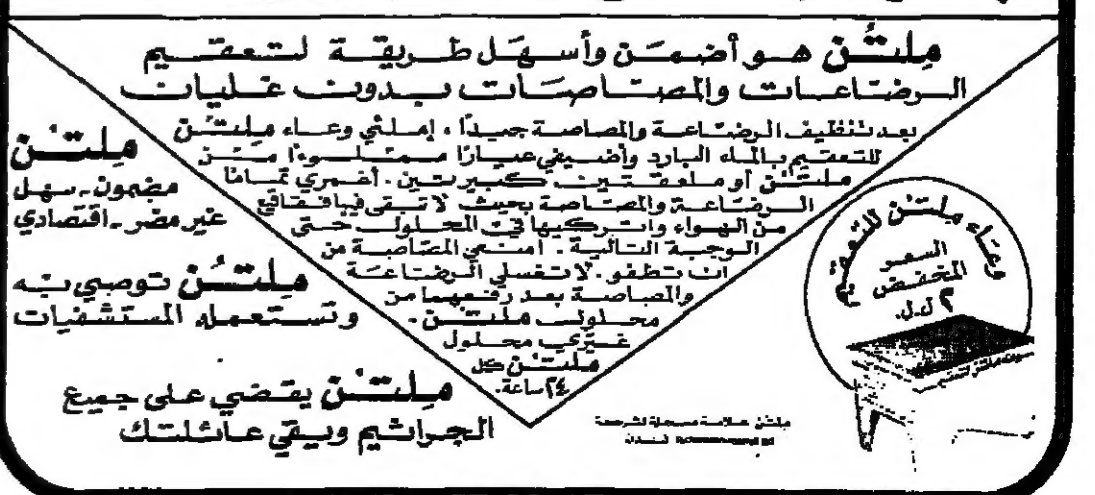 ملتن هو أضمن وأسهل طريقة لتعقيم
الرضاعات والمصاصات بدون غليان
بعد تنظيف الرضاعة والمصاصة جيدًا، إملئي وعاء ملتن
للتعقيم بالماء البارد وأضيفي عيارًا مملوءًا من
ملتن أو ملعقتين كبيرتين. أغمري تمامًا
الرضاعة والمصاصة بحيث لا تبقى فيها فقاقي
من الهواء واتركيها في المحلول حتى
الوجبة التالية. امنعي المصاصة من
ان تطفو. لا تغسلي الرضاعة
والمصاصة بعد رفعهما من
محلول ملتن.
غيّري محلول
ملتن كل
٢٤ ساعة.
ملتن
مضمون - سهل
غير مضر - اقتصادي
ملتن توصي به
وتستعمله المستشفيات
ملتن يقضي على جميع
الجراثيم ويقي عائلتك
وعاء ملتن للتعقيم
السعر
المخفض
٢ ل.ل.
ملتن علامة مسجلة لشركة
لندن